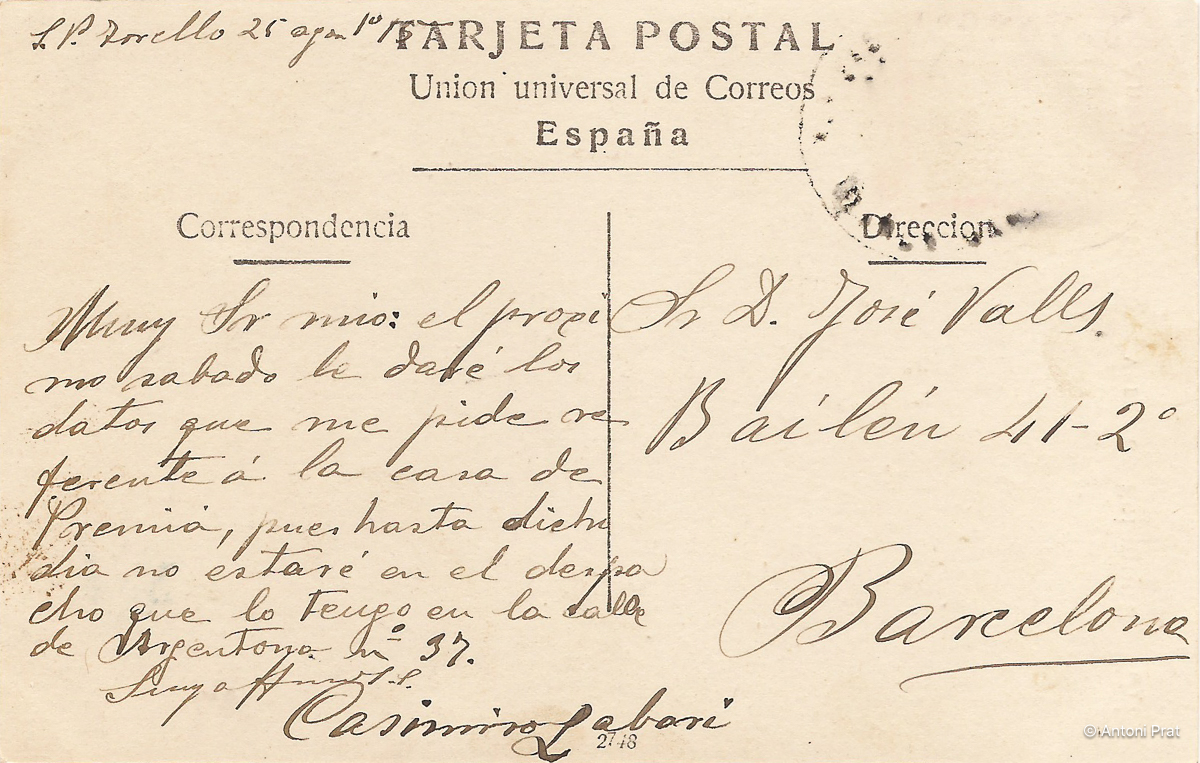 S. P. Torelló 25 agto 1915
TARJETA POSTAL
Union universal de Correos
España
Correspondencia
Muy Sr mio: el proxi
mo sabado le daré los
datos que me pide re
ferente á la casa de
Premiá, pues hasta dicho
dia no estaré en el despa
cho que lo tengo en la calle
de Argentona nº 37.
Suyo
Casimiro Gabari
2748
Direccion
Sr D. José Valls.
Bailén 41-2º
Barcelona
© Antoni Prat